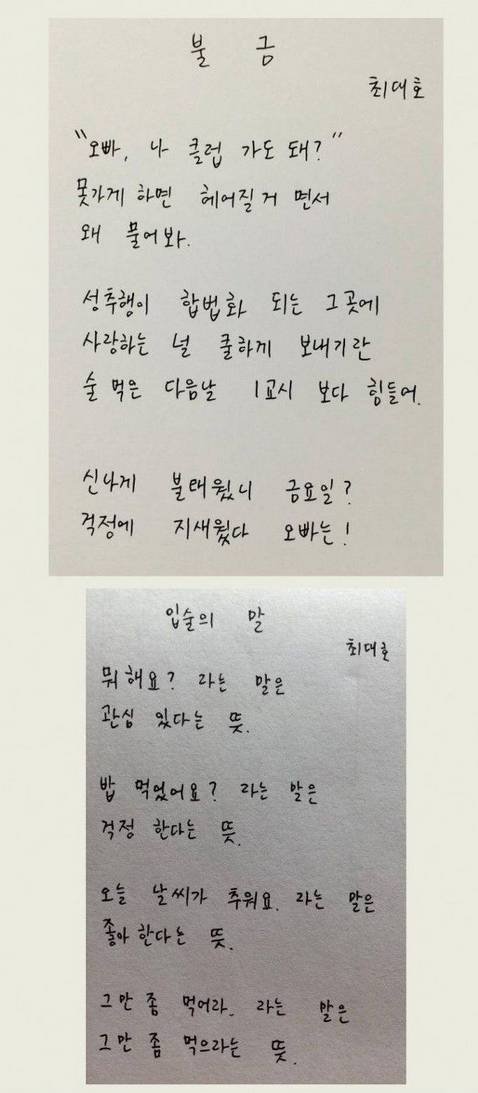 불 금
최대호
"오빠, 나 클럽 가도 돼?"
못가게 하면 헤어질거 면서
왜 물어봐.
성추행이 합법화 되는 그곳에
사랑하는 널 쿨하게 보내기란
술 먹은 다음날 1교시 보다 힘들어.
신나게 불태웠니 금요일?
걱정에 지새웠다 오빠는!
입술의 말
최대호
뭐해요? 라는 말은
관심 있다는 뜻.
밥 먹었어요? 라는 말은
걱정 한다는 뜻.
오늘 날씨가 추워요. 라는 말은
좋아 한다는 뜻.
그만 좀 먹어라. 라는 말은
그만 좀 먹으라는 뜻.